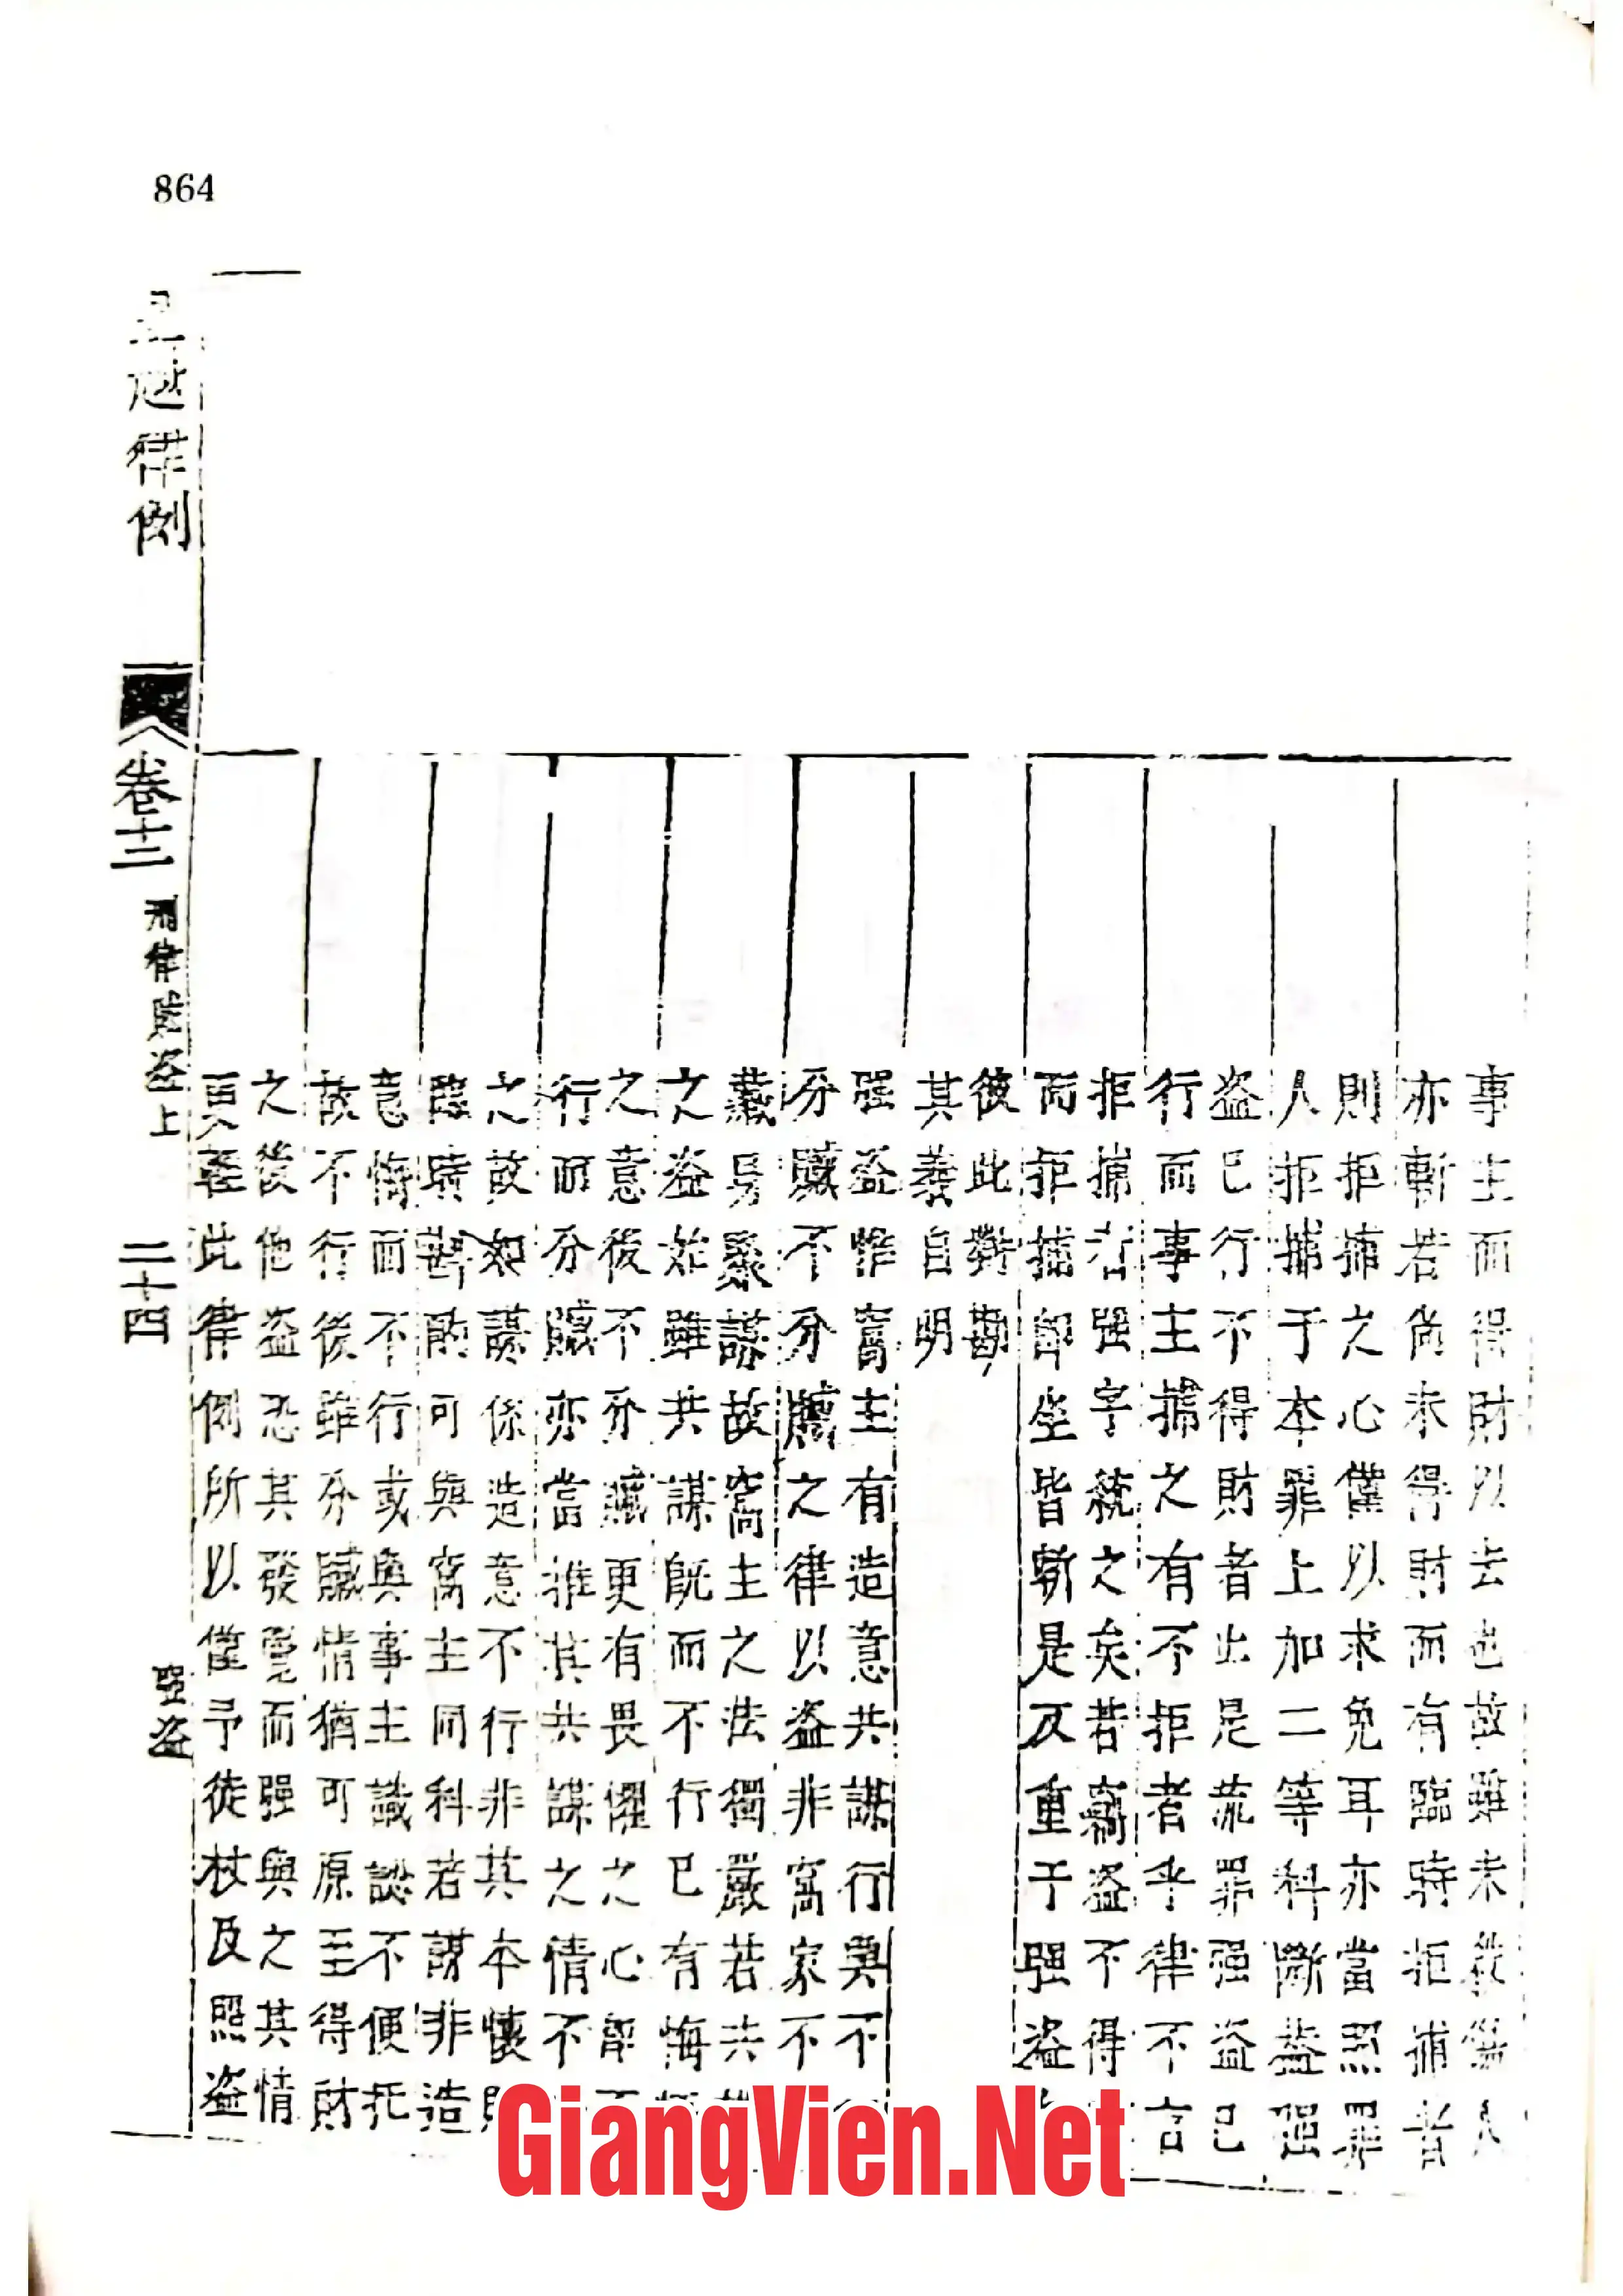 864
事主而得財以去也故雖未殺傷人
亦斬若尚未得財而有臨時拒捕者
則拒捕之心僅以求免耳亦當照罪
人拒捕于本罪上加二等科斷蓋强
盜已行不得財者止是流罪强盜已
行而事主捕之有不拒者乎律不言
拒捕者强字統之矣若竊盜不得
而拒捕卽坐皆斬是反重于强盜
彼此對勘
其義自明
强盜惟窩主有造意共謀行與不
分贜不分贜之律以盜非窩家不
藏身聚謀故窩主之法獨嚴若共
之盜始雖共謀既而不行已有悔
之意後不分贜更有畏懼之心卽
行而分贜亦當推其共謀之情不
之故如謀係造意不行非其本懷
臨時斟酌可與窩主同科若謀非造
意悔而不行或與事主識認不便托
故不行後雖分贜情猶可原至得財
之後他盜恐其發覺而强與之其情
更輕此律例所以僅予徒杖及照盜
越律例
卷十二
刑律賊盜上
二十四
强盜
GiangVien.Net